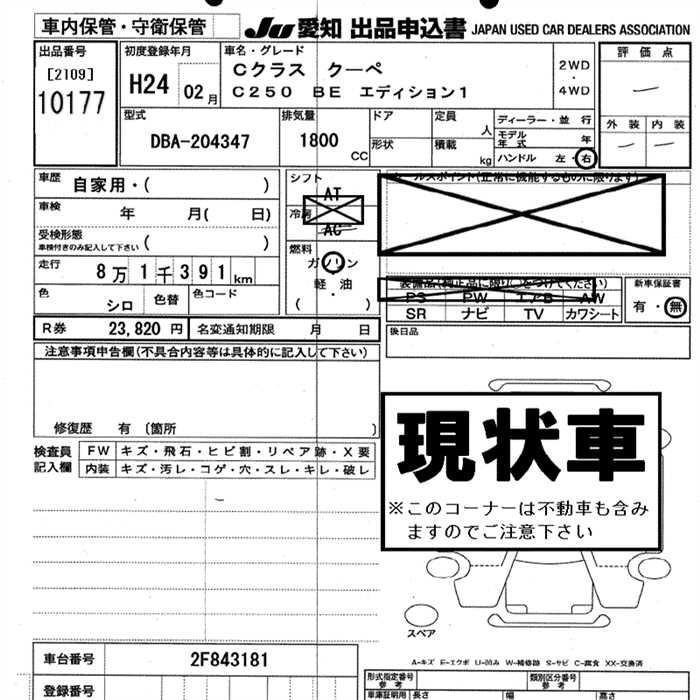 車内保管・守衛保管
JU 愛知 出品申込書 JAPAN USED CAR DEALERS ASSOCIATION
出品番号
[2109]
10177
初度登録年月
H24 02 月
車名・グレード
Cクラス クーペ
C250 BE エディション1
2WD
・
4WD
評価点
外装 内装
型式
DBA-204347
排気量
1800
CC
ドア
形状
定員
人
積載
kg
ディーラー・並 行
モデル年式 年
ハンドル 左・右
車歴
自家用・( )
車検
年 月( 日)
受検形態
車検付きのみ記入して下さい ( )
走行
8万1千391km
色
シロ
色替
色コード
シフト
AT
冷房
AC
燃料
ガソリン
軽・油
( )
セールスポイント(正常に機能するものに限ります)
装備品(純正品に限り○をつけてください)
PS PW エアB AW
SR ナビ TV カワシート
新車保証書
有・無
後日品
R券 23,820 円 名変通知期限 月 日
注意事項申告欄(不具合内容等は具体的に記入して下さい)
修復歴 有 〔箇所 〕
検査員
記入欄
FW キズ・飛石・ヒビ割・リペア跡・X要
内装 キズ・汚レ・コゲ・穴・スレ・キレ・破レ
現状車
※このコーナーは不動車も含み
ますのでご注意下さい
スペア
A-キズ E-エクボ U-凹み W-補修跡 S-サビ C-腐食 XX-交換済
車台番号 2F843181
登録番号
形式指定番号
参考
類別区分番号
参考
車庫証明用 長さ 幅 高さ